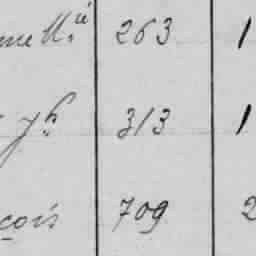 me M.ie 263 1
jh 313 1
çois 709 2